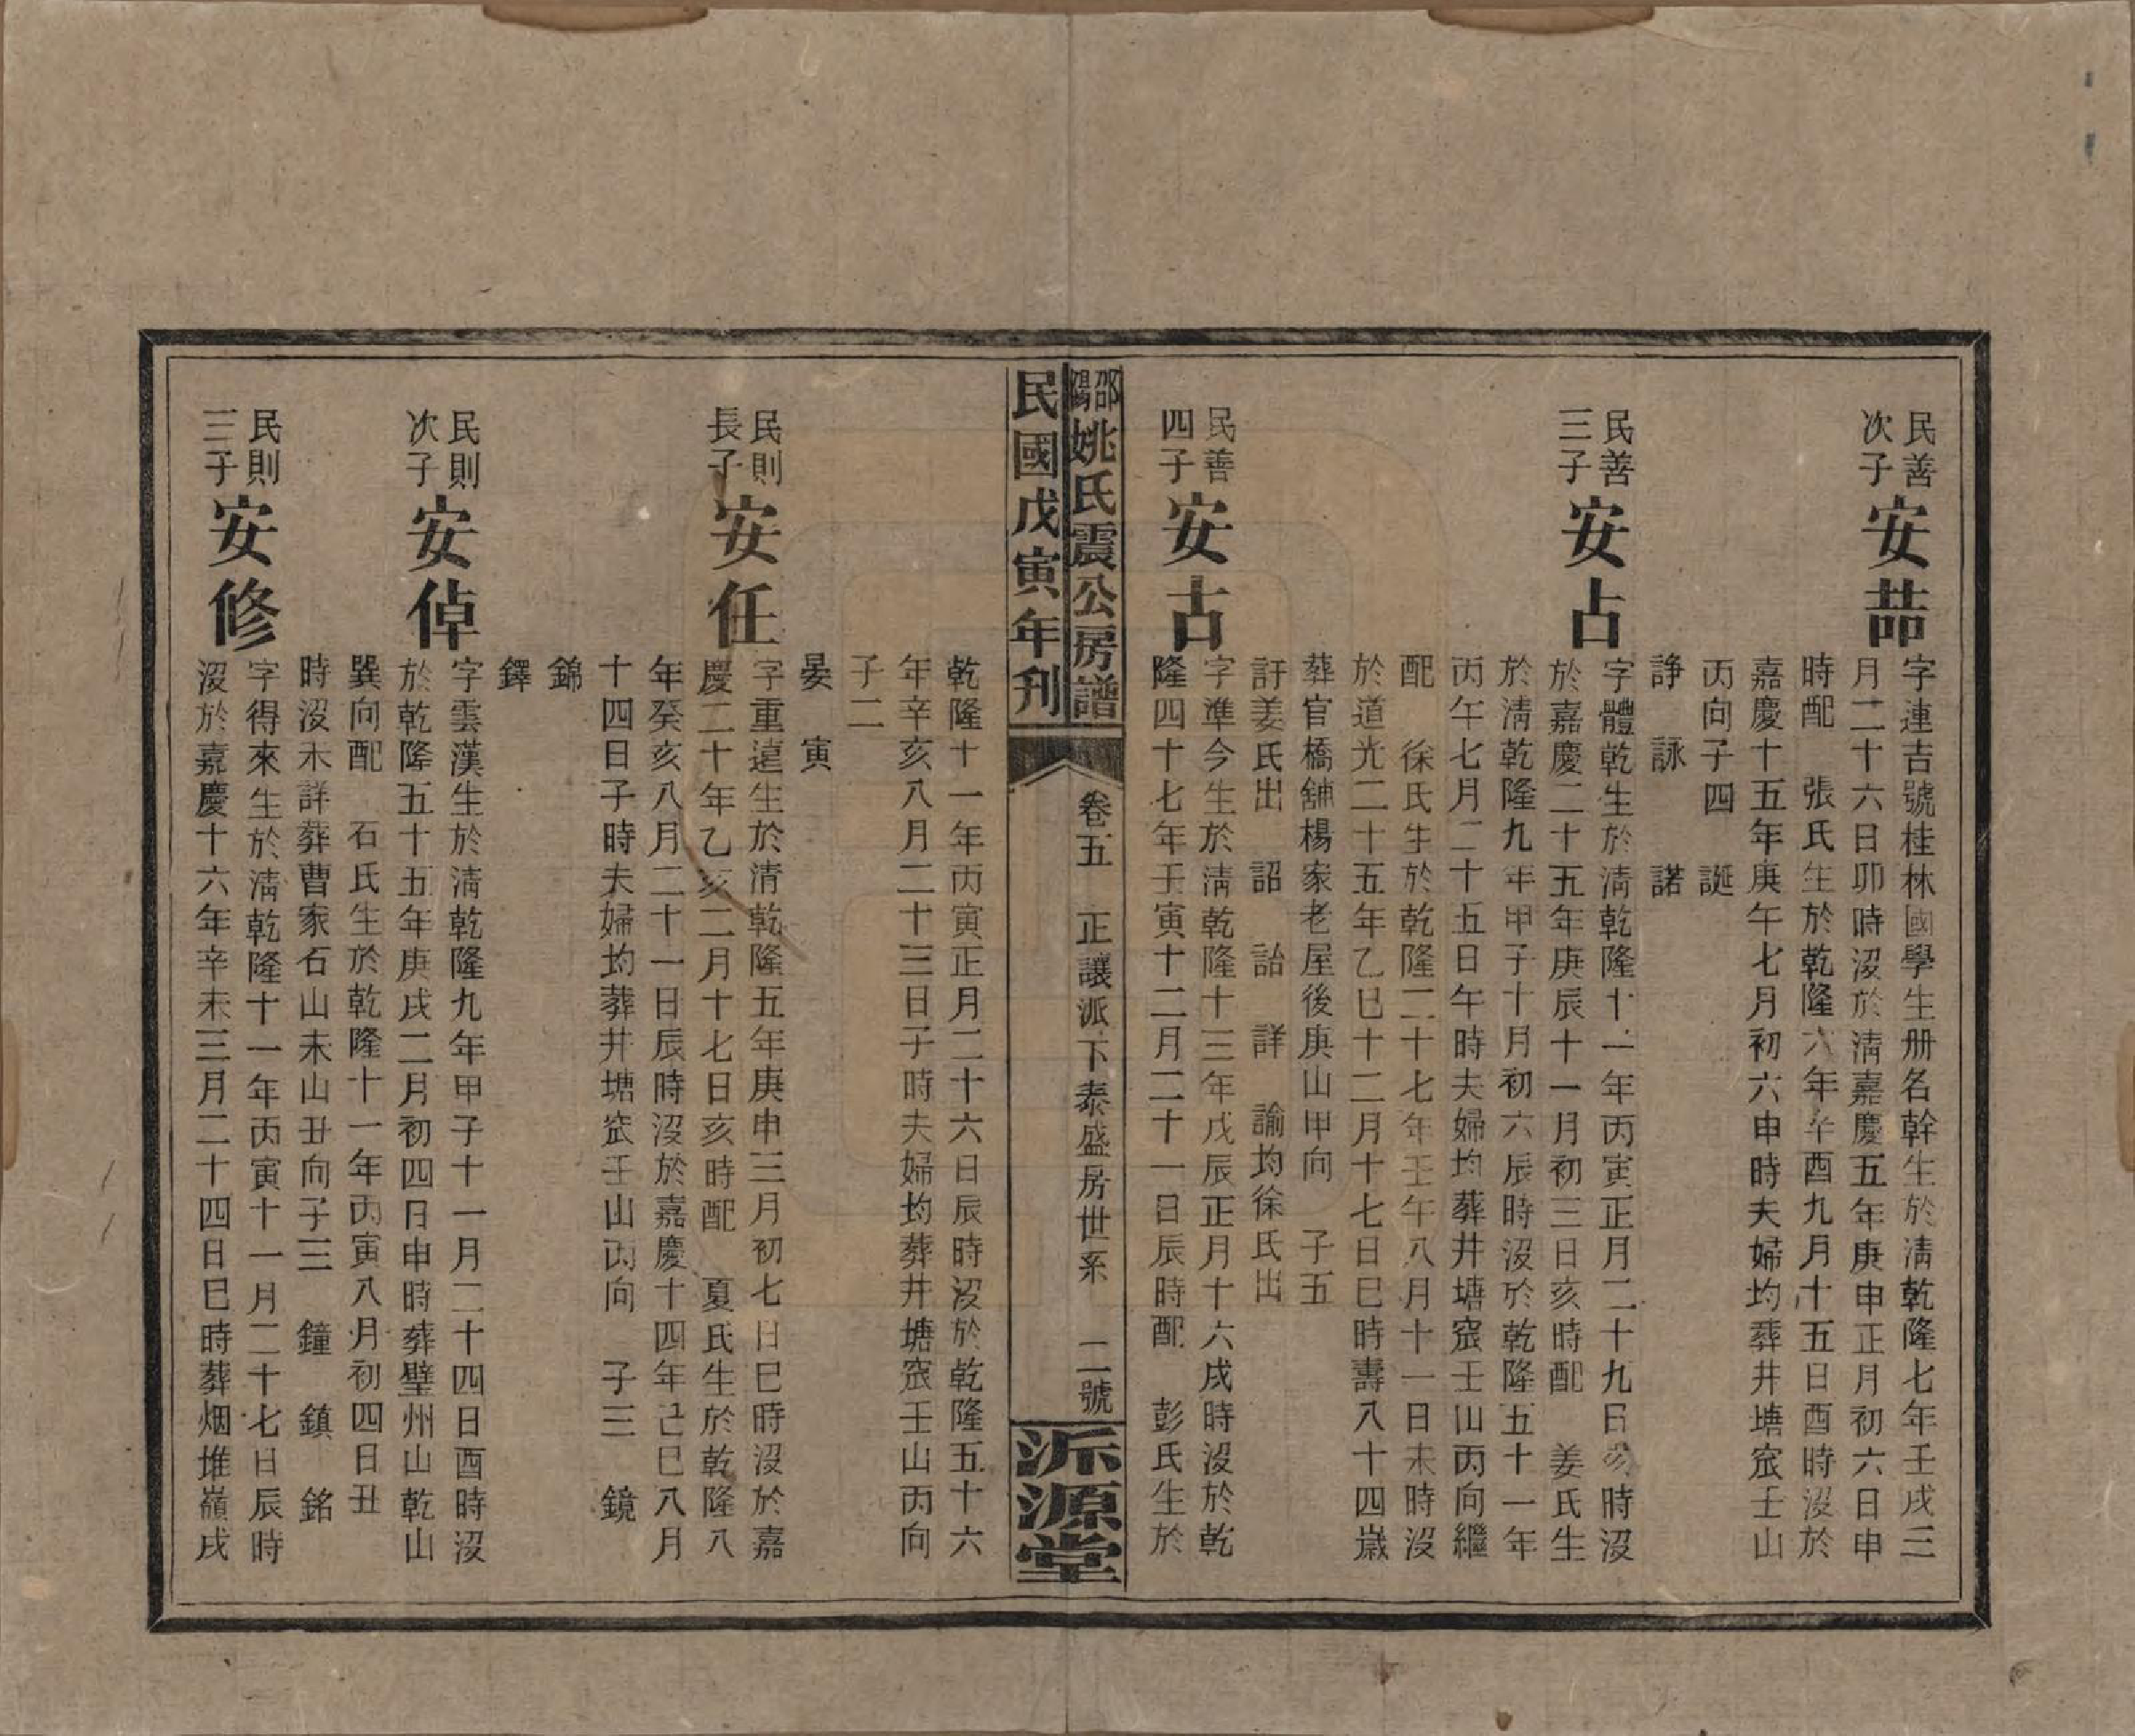 民善
次子
安喆
字連吉號桂林國學生册名幹生於清乾隆七年壬戌三
月二十六日卯時沒於清嘉慶五年庚申正月初六日申
時配 張氏生於乾隆六年辛酉九月十五日酉時沒於
嘉慶十五年庚午七月初六申時夫婦均葬井塘窊壬山
丙向子四 誕
諍 詠 諾
民善
三子
安占
字體乾生於清乾隆十一年丙寅正月二十九日亥時沒
於嘉慶二十五年庚辰十一月初三日亥時配 姜氏生
於清乾隆九年甲子十月初六辰時沒於乾隆五十一年
丙午七月二十五日午時夫婦均葬井塘窊壬山丙向繼
配 徐氏生於乾隆二十七年壬午八月十一日未時沒
於道光二十五年乙巳十二月十七日巳時壽八十四歲
葬官橋舖楊家老屋後庚山甲向 子五
訏姜氏出 詔 詒 詳 諭均徐氏出
民善
四子
安古
字準今生於清乾隆十三年戊辰正月十六戌時沒於乾
隆四十七年壬寅十二月二十一日辰時配 彭氏生於
邵陽姚氏震公房譜
民國戊寅年刋
卷五 正讓派下泰盛房世系 二號
派源堂
乾隆十一年丙寅正月二十六日辰時沒於乾隆五十六
年辛亥八月二十三日子時夫婦均葬井塘窊壬山丙向
子二
晏 寅
民則
長子
安任
字重遠生於清乾隆五年庚申三月初七日巳時沒於嘉
慶二十年乙亥二月十七日亥時配 夏氏生於乾隆八
年癸亥八月二十一日辰時沒於嘉慶十四年己巳八月
十四日子時夫婦均葬井塘窊壬山丙向 子三 鏡
錦
鐸
民則
次子
安倬
字雲漢生於清乾隆九年甲子十一月二十四日酉時沒
於乾隆五十五年庚戌二月初四日申時葬壁州山乾山
巽向配 石氏生於乾隆十一年丙寅八月初四日丑
時沒未詳葬曹家石山未山丑向子三 鐘 鎮 銘
民則
三子
安修
字得來生於清乾隆十一年丙寅十一月二十七日辰時
沒於嘉慶十六年辛未三月二十四日巳時葬烟堆嶺戌